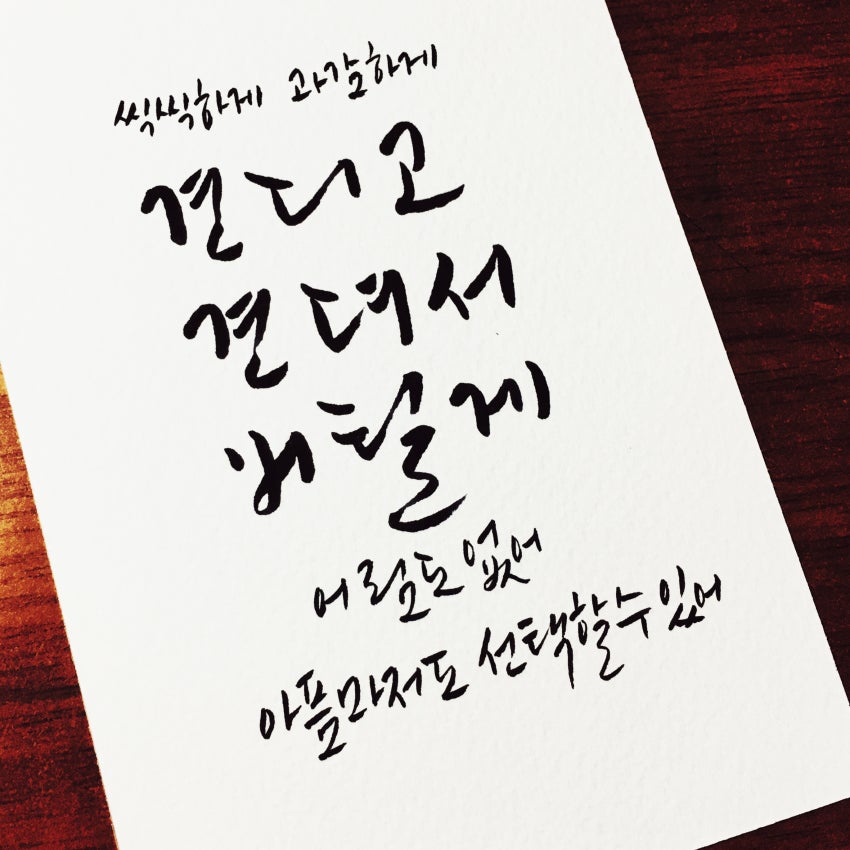 씩씩하게 과감하게
견디고
견뎌서
버틸게
어림도 없어
아픔마저도 선택할 수 있어